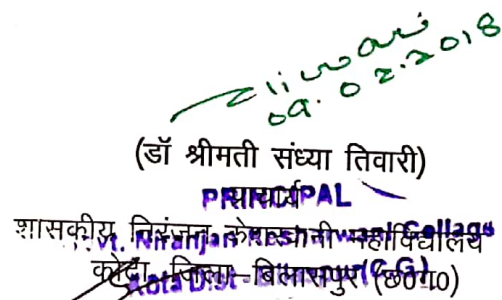 Tiwari
09.02.2018
(डॉ श्रीमती संध्या तिवारी)
प्राचार्य
PRINCIPAL
शासकीय निरंजन केशरवानी महाविद्यालय
Govt. Niranjan Keshrwani College
कोटा जिला–बिलासपुर (छ0ग0)
Kota Dist-Bilaspur (C.G.)